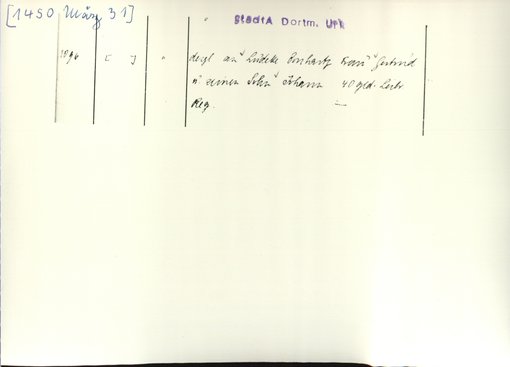 [1450 März 31]
StadtA Dortm. Urk
1096 [ ] "
desgl an Lüdeke Frau Gertrud
u seinen Sohn Johann 40 gld. Leibr
Reg. —